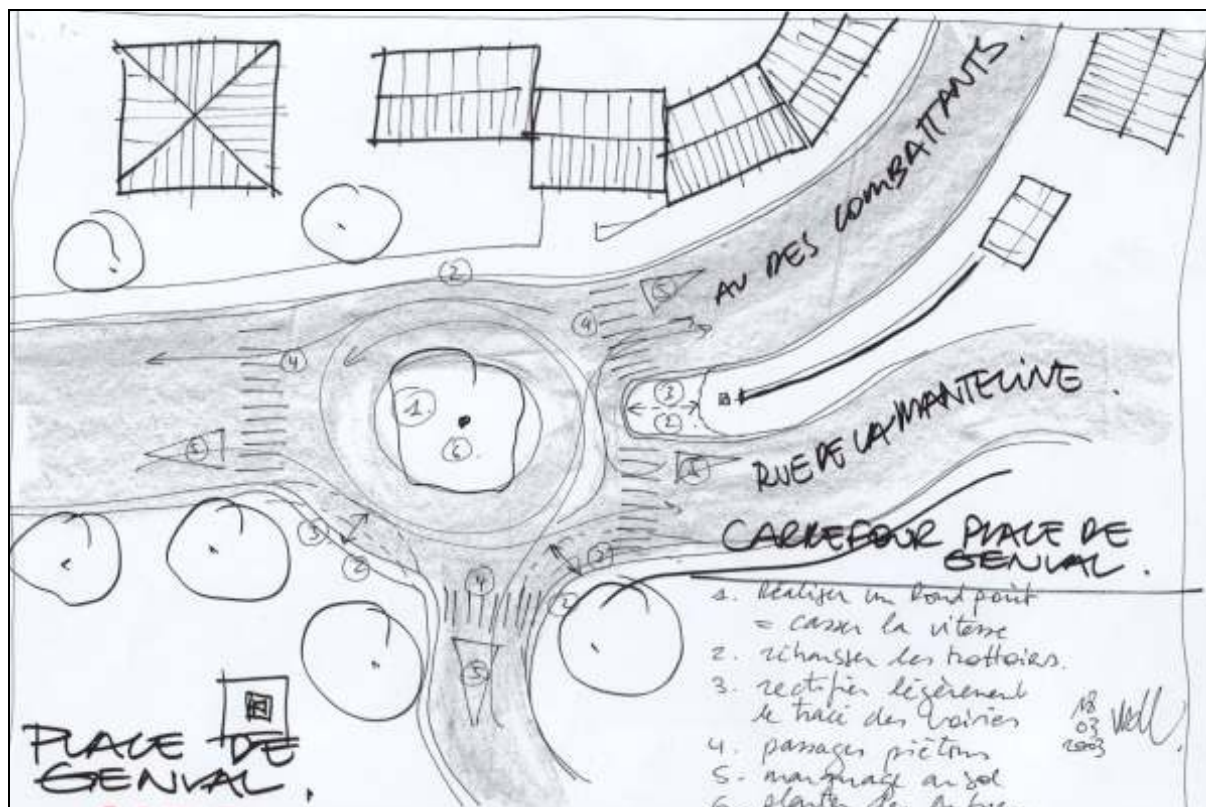 AV DES COMBATTANTS.
RUE DE LA MANTELINE
CARREFOUR PLACE DE
GENVAL.
1. Réaliser un Rond point
= casser la vitesse
2. réhausser les trottoirs.
3. rectifier légèrement
le tracé des voiries
4. passages piétons
5. marquage au sol
6. planter
18
03
2003
PLACE DE
GENVAL.
2
5
4
4
1.
6.
3
2
5
5
3
2
4
3
2
5